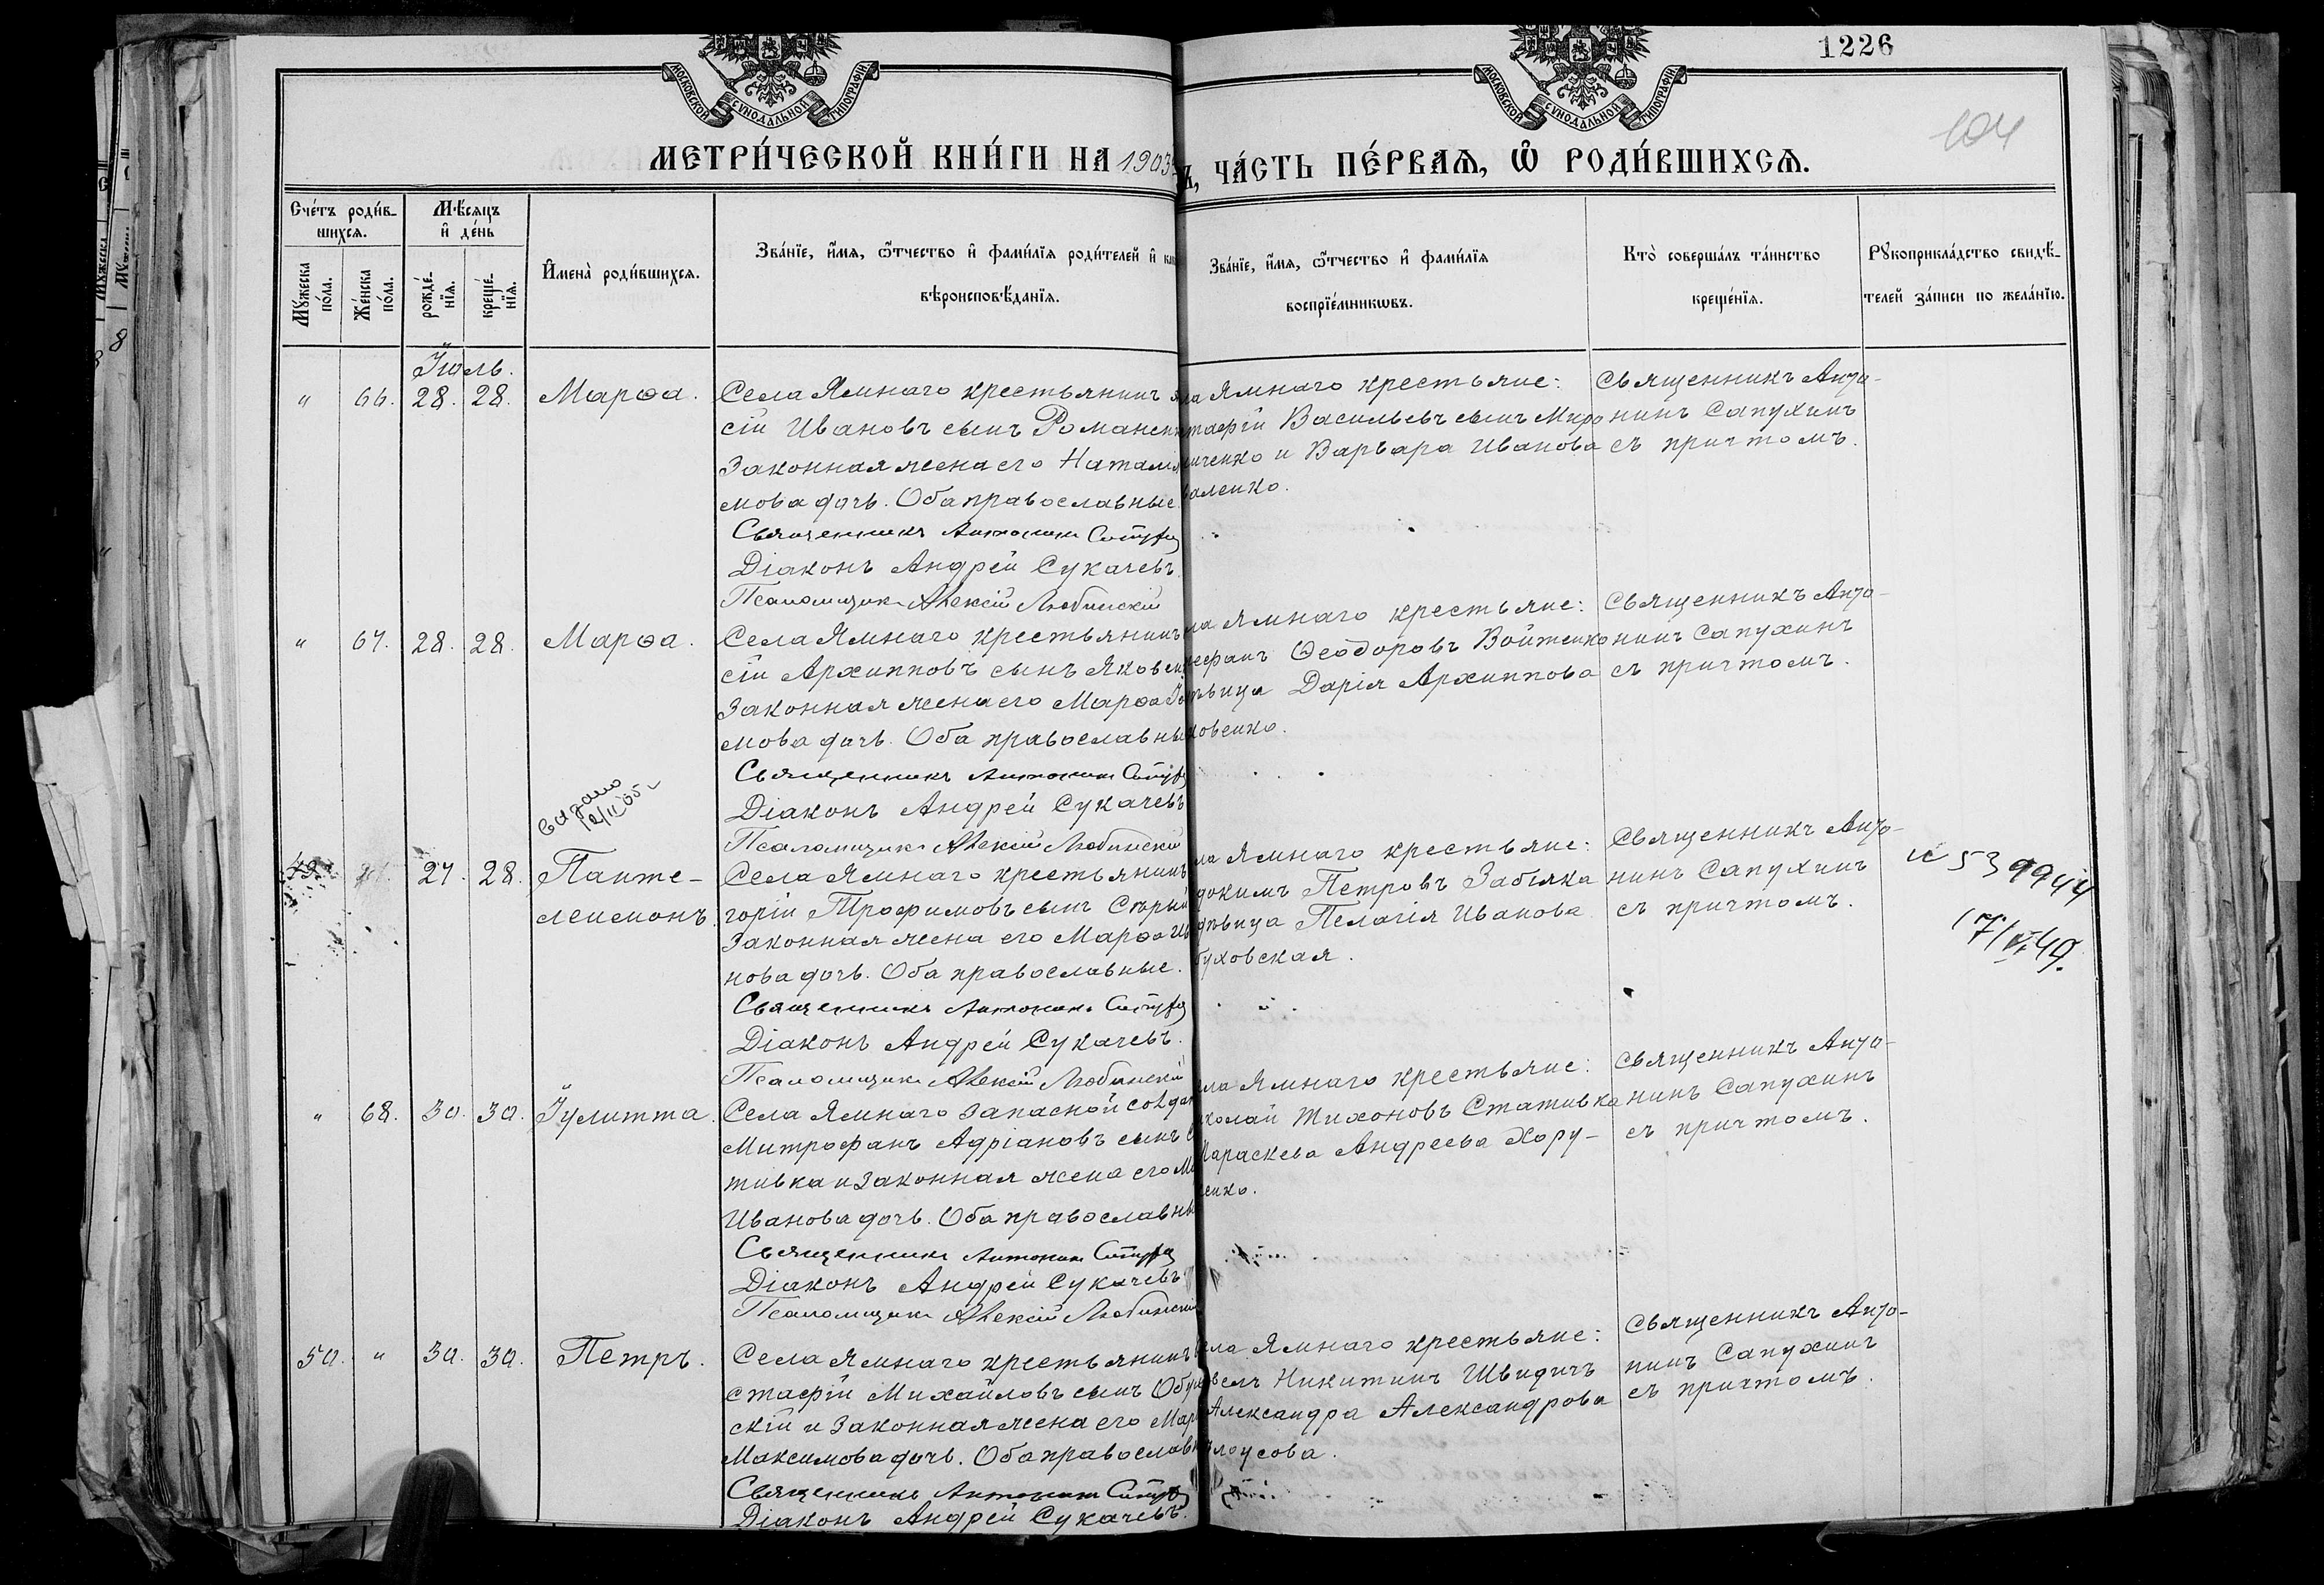 1226
104
МОСКОВСКОЙ СѴНОДАЛЬНОЙ ТИПОГРАФІИ
МОСКОВСКОЙ СѴНОДАЛЬНОЙ ТИПОГРАФІИ
МЕТРИ́ЧЕСКОЙ КНИ́ГИ НА 1903
Ъ, ЧА́СТЬ ПЕ́РВАѦ, Ѡ҆ РОДИ́ВШИХСѦ.
Сче́тъ роди́в-
шихсѧ.
Мѣ́сѧцъ
и҆ де́нь
Мꙋ́жеска
по́ла.
Же́нска
по́ла.
рожде́-
нїѧ.
креще́-
нїѧ.
И҆мена̀ роди́вшихсѧ.
Зва́нїе, и҆́мѧ, ѻ҆́тчество и҆ фами́лїѧ роди́телей и҆
вѣроисповѣ́данїѧ.
Зва́нїе, и҆́мѧ, ѻ҆́тчество и҆ фами́лїѧ
воспрїе́мникѡвъ.
Кто̀ соверша́лъ та́инство
креще́нїѧ.
Рꙋкоприкла́дство свидѣ́-
телей за́писи по жела́нїю.
Іюль.
" 66. 28. 28. Марѳа.
Села Ямнаго крестьянинъ
сій Ивановъ сынъ Романен
Законная жена его Наталія
мова дочь. Оба православные
Священникъ Антонинъ Сапух
Діаконъ Андрей Сукачевъ
Псаломщикъ Алексій Любинскій
ла Ямнаго крестьяне:
тафій Васильевъ сынъ Миро
ниченко и Варвара Иванова
валенко.
Священникъ Анто-
нинъ Сапухинъ
съ причтомъ.
" 67. 28. 28. Марѳа.
Села Ямнаго крестьянинъ
сій Архипповъ сынъ Яковен
Законная жена его Марѳа
мова дочь. Оба православны
Священникъ Антонинъ Сапух
Діаконъ Андрей Сукачевъ
Псаломщикъ Алексій Любинскій
ла Ямнаго крестьяне:
ефанъ Ѳеодоровъ Войтенко
дѣвица Дарія Архиппова
ковенко.
Священникъ Анто-
нинъ Сапухинъ
съ причтомъ.
Выдано
49. 27. 28. Панте-
леимонъ.
Села Ямнаго крестьянинъ
горій Трофимовъ сынъ Сѣрый
Законная жена его Марѳа Ив
нова дочь. Оба православные.
Священникъ Антонинъ Сапух
Діаконъ Андрей Сукачевъ.
Псаломщикъ Алексій Любинскій
ла Ямнаго крестьяне:
докимъ Петровъ Забіяка
дѣвица Пелагія Иванова
буховская.
Священникъ Анто-
нинъ Сапухинъ
съ причтомъ.
539944
17/VI 49.
" 68. 30. 30. Іулитта.
Села Ямнаго запасной солдат
Митрофанъ Адріановъ сынъ С
тивка и законная жена его М
Иванова дочь. Оба православны
Священникъ Антонинъ Сапух
Діаконъ Андрей Сукачевъ
Псаломщикъ Алексій Любинскій
ела Ямнаго крестьяне:
колай Тихоновъ Стативка
Параскева Андреева Хору-
енко.
Священникъ Анто-
нинъ Сапухинъ
съ причтомъ.
50. " 30. 30. Петръ.
Села Ямнаго крестьянинъ
стафій Михайловъ сынъ Обух
скій и законная жена его Мар
Максимова дочь. Оба православ
Священникъ Антонинъ Сапух
Діаконъ Андрей Сукачевъ.
ела Ямнаго крестьяне:
велъ Никитинъ Швидичъ
Александра Александрова
лоусова.
Священникъ Анто-
нинъ Сапухинъ
съ причтомъ.